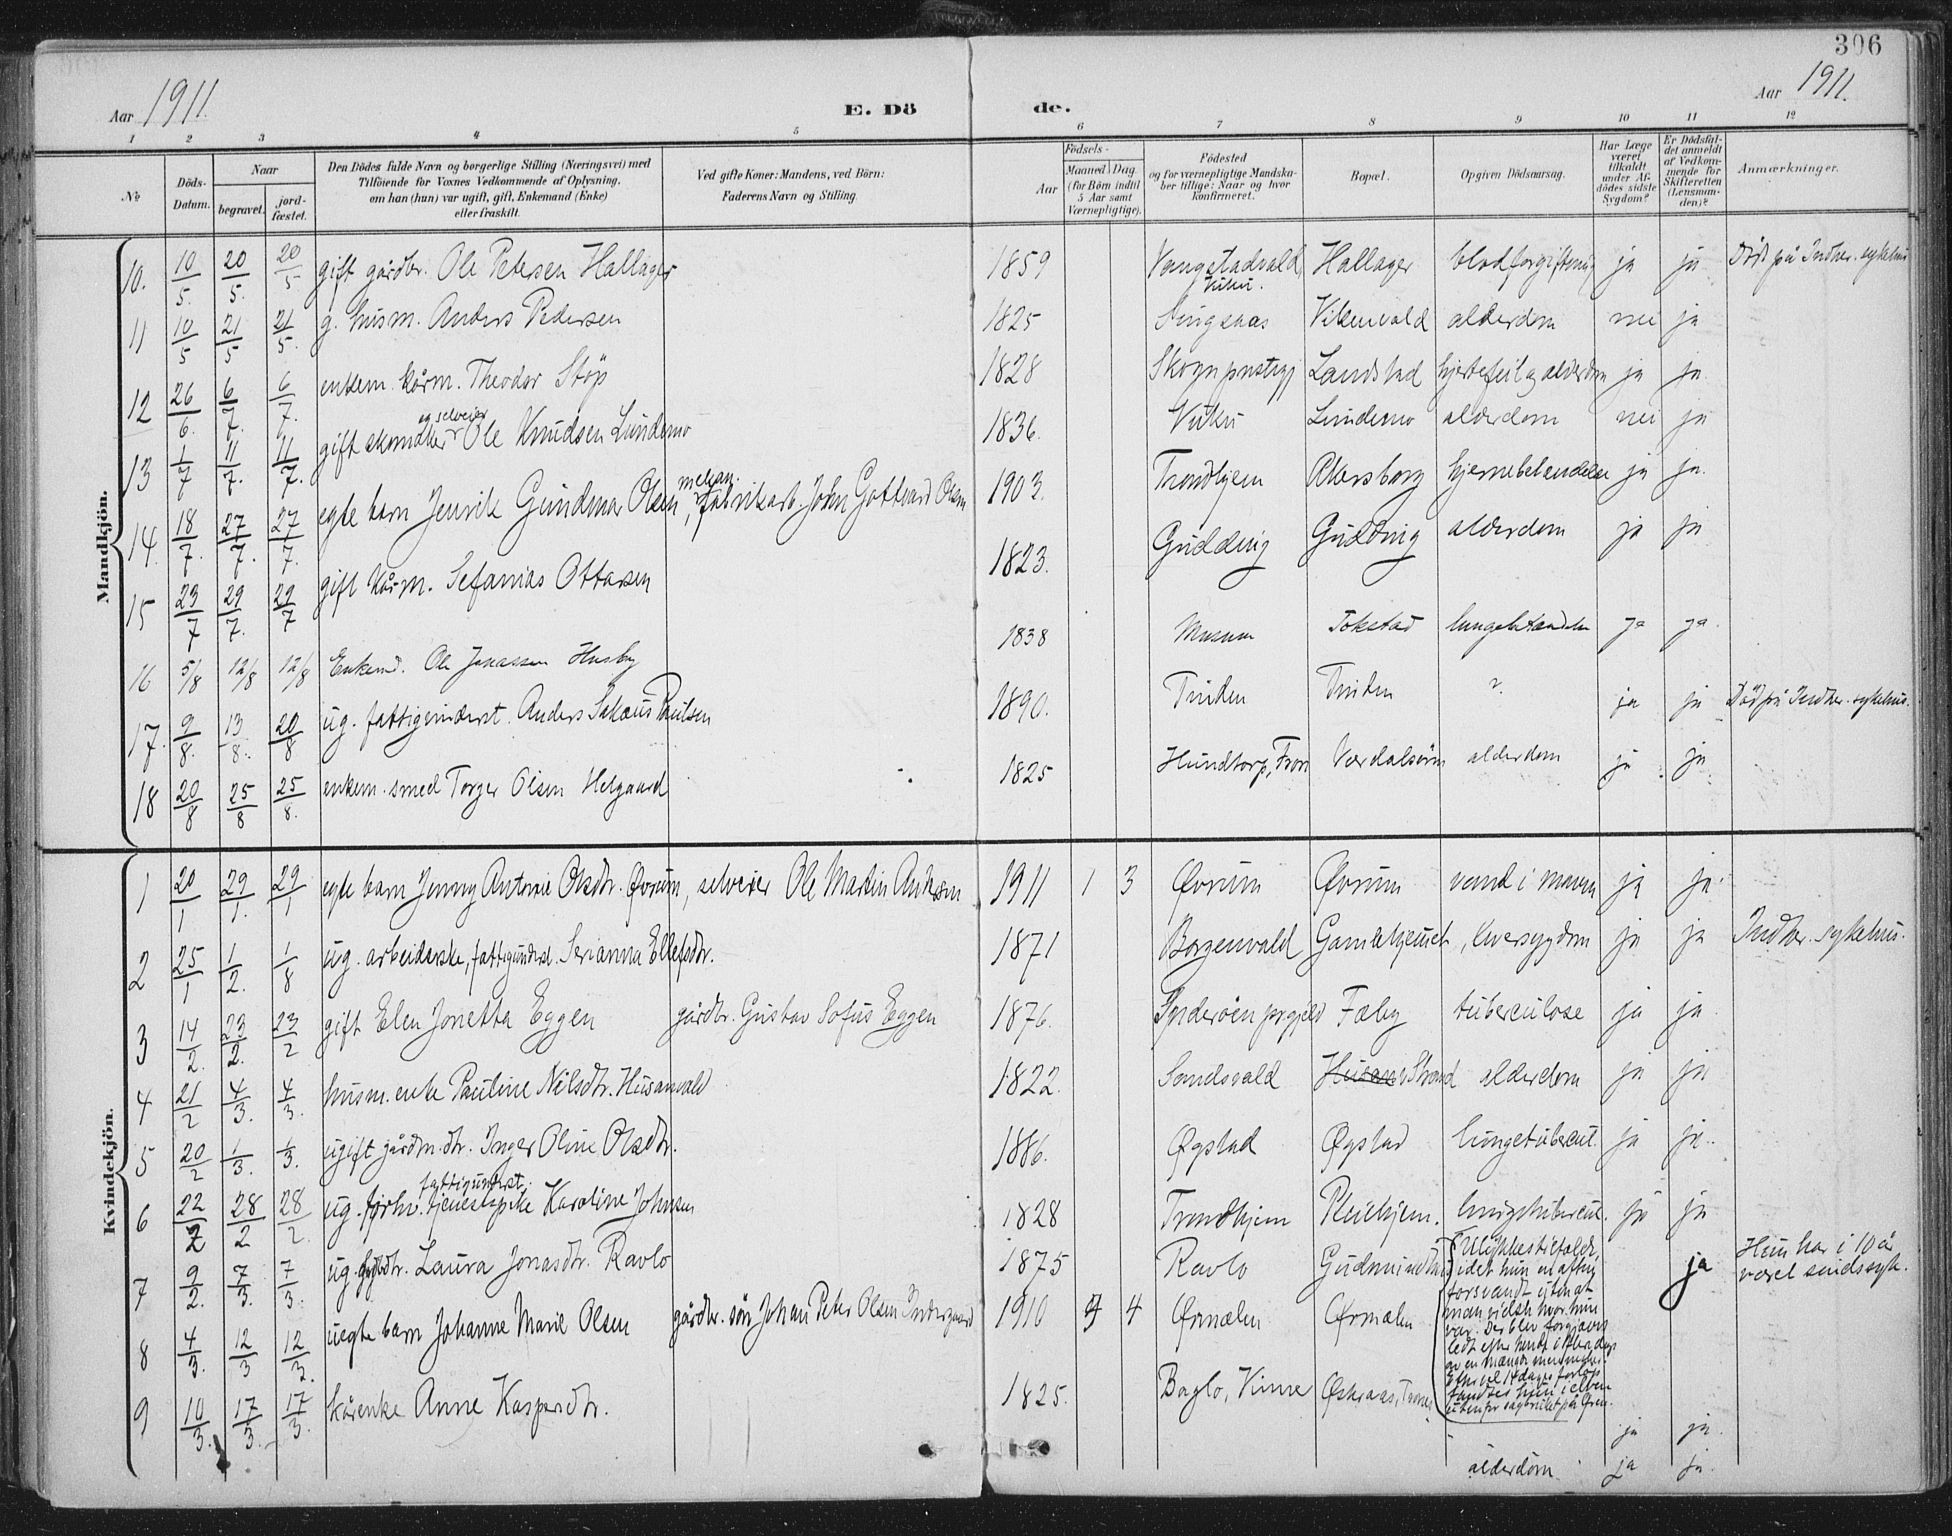 306
Aar 1911. E. Dö de. Aar 1911.
1 2 3 4 5 6 7 8 9 10 11 12
№ Döds-Datum. Naar begravet. jord-fæstet. Den Dödes fulde Navn og borgerlige Stilling (Næringsvei) med Tilföiende for Voxnes Vedkommende af Oplysning, om han (hun) var ugift, gift, Enkemand (Enke) eller fraskilt. Ved gifte Koner: Mandens, ved Börn: Faderens Navn og Stilling. Födsels- Aar Maaned Dag (for Börn indtil 5 Aar samt Værnepligtige). Födested og for værnepligtige Mandskaber tillige: Naar og hvor konfirmeret. Bopæl. Opgiven Dödsaarsag. Har Læge været tilkaldt under Afdödes sidste Sygdom? Er Dödsfaldet anmeldt af Vedkommende for Skifteretten (Lensmanden)? Anmærkninger.
Mandkjön.
10. 10/5. 20/5. 20/5 gift gårdbr. Ole Petersen Hallager 1859 Vangstadvald, Vuku. Hallager blodforgiftning ja ja Död på Indher. sykehus
11 10/5 21/5 21/5. g. husm. Anders Pedersen 1825 Singsaas Vikenvald alderdom nei ja
12 26/6. 6/7. 6/7. enkem. kårm. Theodor Stöp 1828 Skogn prestegj Landstad hjertefeil og alderdom ja ja
13 1/7 11/7. 11/7. gift skomaker og selveier Ole Knudsen Lundemo 1836. Vuku Lundemo alderdom nei ja
14. 18/7. 27/7. 27/7. egte barn Jenrik Gundmar Olsen, mekan. fabrikarb. John Gothard Olsen 1903. Trondhjem Akersborg hjernebetændelse ja ja.
15 23/7 29/7. 29/7 gift kårm. Sefanias Ottersen 1823. Gudding Gudding alderdom ja ja
16 5/8 12/8 12/8 Enkemd. Ole Jonassen Husby 1838 Musum Tokstad lungebetændelse ja ja
17. 9/8. 13/8. 20/8 ug. fattigunderst. Anders Sakæus Paulsen 1890. Trinden Trinden ? ja ja Död på Indher. sykehus.
18 20/8 25/8 25/8. enkem. smed Torger Olsen Helgaard 1825 Hundtorp, Fron Værdalsören alderdom ja ja
Kvindekjön.
1 20/1 29/1. 29/1 egte barn Jenny Antonie Olsdtr. Øvrum, selveier Ole Martin Andersen 1911 1 3 Øvrum Øvrum vand i maven ja ja
2 25/1 1/2. 1/8 ug. arbeiderske, fattigunderst. Serianna Ellefsdtr. 1871 Borgenvald Gamlehjemet, liversygdom ja ja Indher. sykehus.
3 14/2. 23/2. 23/2 gift Elen Jonetta Eggen gårdbr. Gustav Sofus Eggen 1876. Ynderöen prgjeld Fæby tuberculose ja ja
4 21/2 4/3. 4/3. husm. enke Pauline Nilsdtr. Husanvald 1822. Sundsvald Husan Strand alderdom ja ja
5 20/2 1/3. 1/3. ugift gårdm. dtr. Inger Oline Olsdtr. 1886. Øgstad Øgstad lungetubercul. ja ja
6 22/2 28/2 28/2. ug. forhv. tjenestepike fattigunderst. Karoline Johnsen 1828 Trondhjem Pleiehjem. lungetubercul. ja ja
7 9/2. 7/3. 7/3. ug. gbrdtr. Laura Jonasdtr. Ravlo 1875 Ravlo Gudmundhus Ulykkestilfælde, idet hun en aften forsvandt uten at man vidste hvor hun var. Der blev forgjæves ledt efter hende i flere dage av en mængde mennesker. Efter vel 14 dages forløp fandtes hun i elven utenfor sagbruket på Ören. ja Hun har i 10 år været sindssyk.
8 4/3. 12/3 12/3. uegte barn Johanne Marie Olsen gårdbr. sön Johan Peter Olsen Indergaard 1910 9 4 Ørmælen Ørmælen ja ja.
9 10/3. 17/3. 17/3. kårenke Anne Kaspersdtr. 1825. Baglo, Vinne Øskraas, alderdom ja ja.